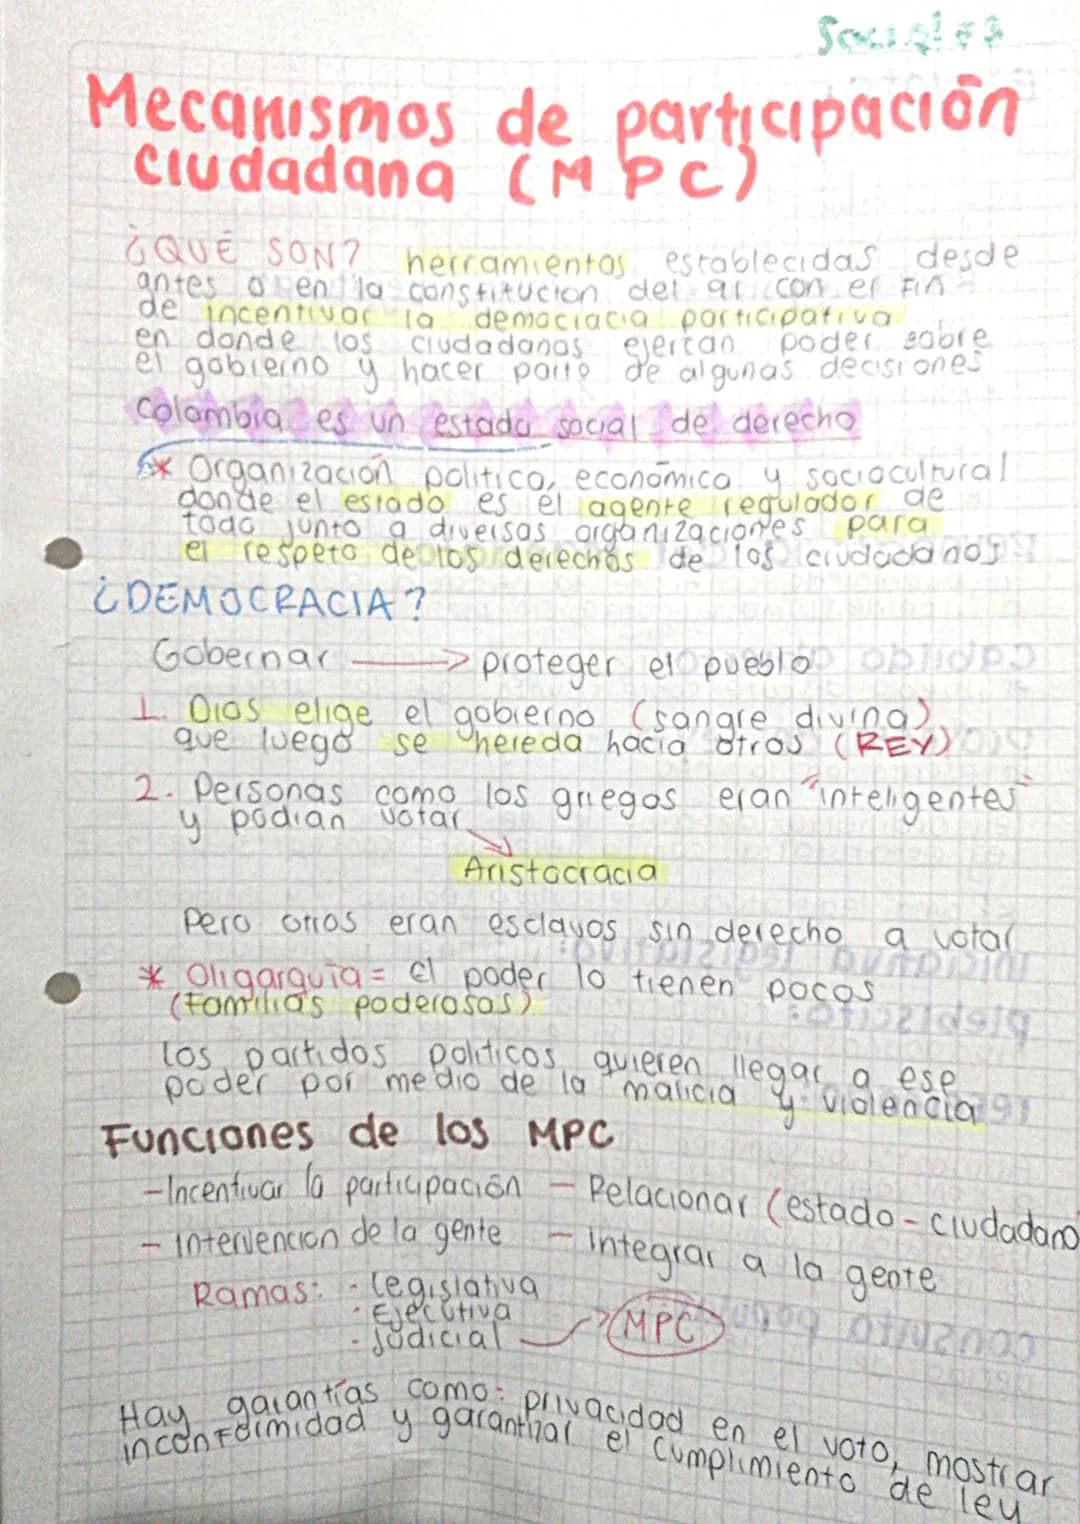 Sociales
Mecanismos de participación
ciudadana (MPC)
¿QUÉ SON? herramientas establecidas desde
antes o en la constitucion del 91 con el fin
de incentivar la democracia participativa
en donde los ciudadanos ejerzan poder sobre
el gobierno y hacer parte de algunas decisiones
Colombia es un estado social de derecho
* Organización politica, económica y sociocultural
donde el estado es el agente regulador de
todo junto a diversas organizaciones para
el respeto de los derechos de los ciudadanos
¿DEMOCRACIA?
Gobernar → proteger el pueblo
1. Dios elige el gobierno (sangre divina)
que luego se hereda hacia otros (REY)
2. Personas como los griegos eran "inteligentes"
y podian votar
Aristocracia
Pero otros eran esclavos sin derecho a votar
* Oligarquía = El poder lo tienen pocos
(familias poderosas)
los partidos politicos quieren llegar a ese
poder por medio de la malicia y violencia
Funciones de los MPC
- Incentivar la participación - Relacionar (estado - ciudadano
- Intervencion de la gente - Integrar a la gente
Ramas: - Legislativa
- Ejecutiva
- Judicial → MPC
Hay garantías como: privacidad en el voto, mostrar
inconformidad y garantizar el cumplimiento de ley